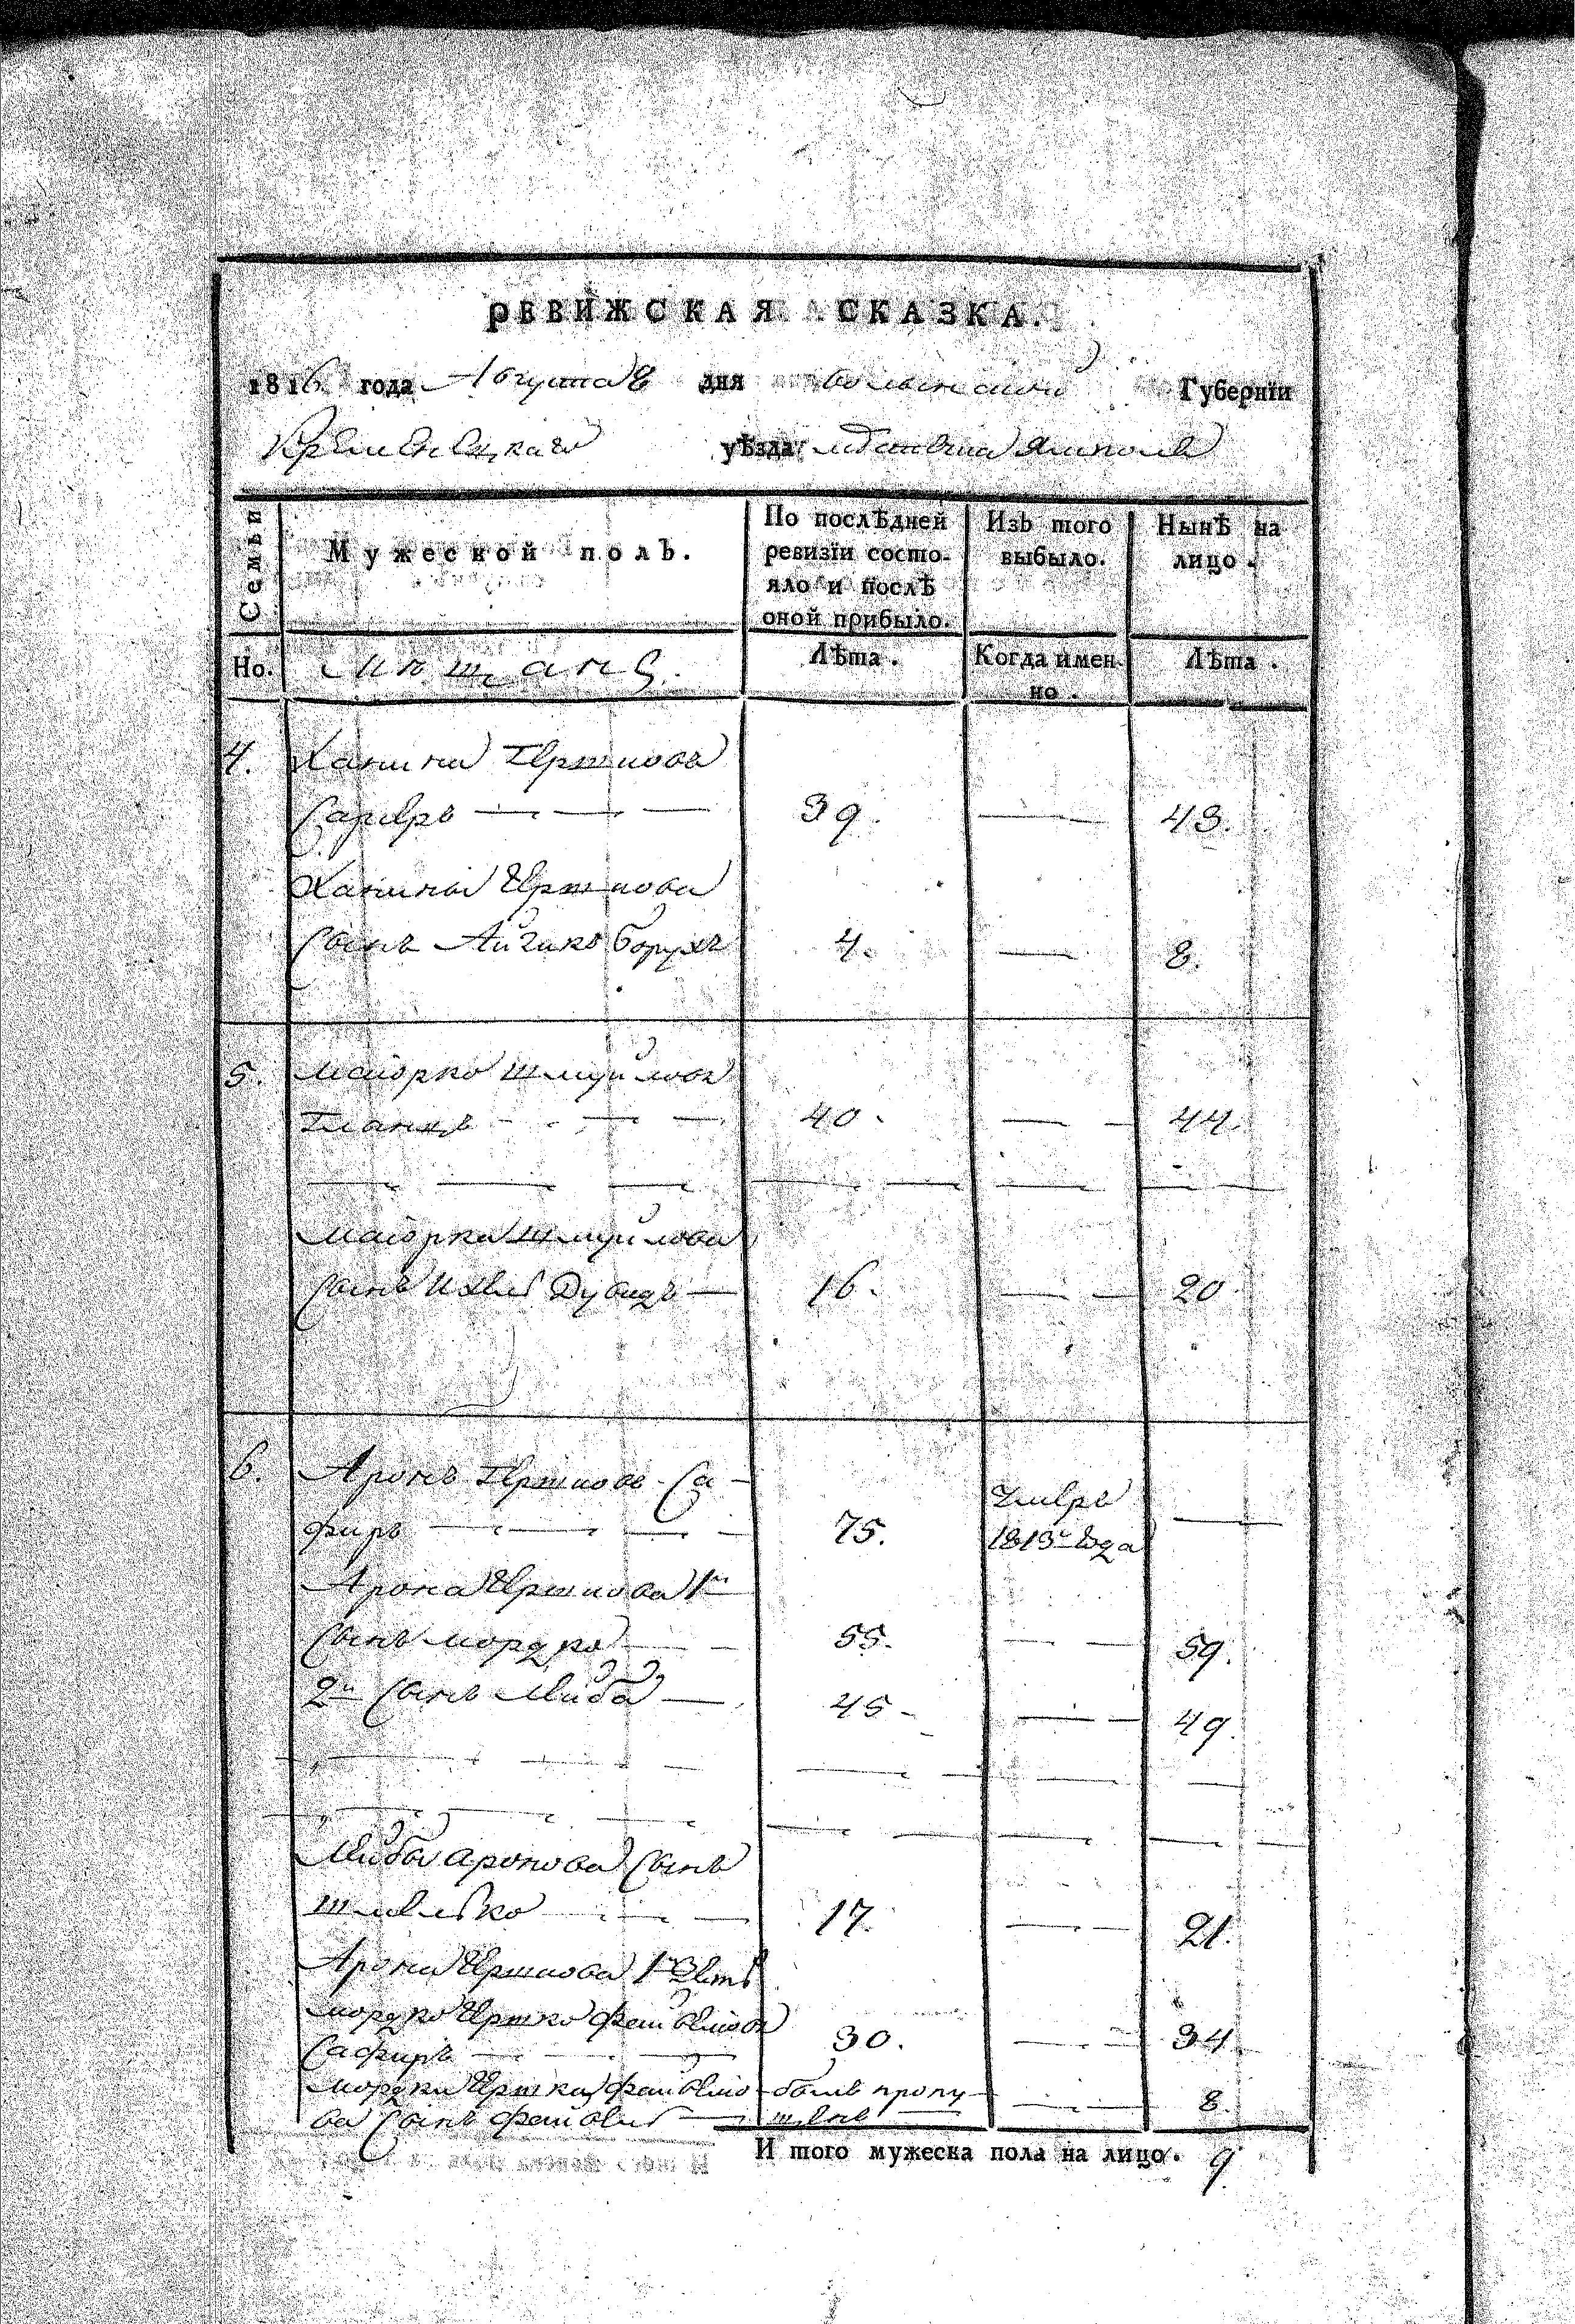 РЕВИЖСКАЯ СКАЗКА.
1816 года Августа 8 дня Волынской Губернїи
Кременецкаго уѣзда мѣстечка Ямполя
Семьи
Мужеской полъ.
По послѣдней ревизїи состояло и послѣ оной прибыло.
Изъ того выбыло.
Нынѣ на лицо.
Но.
Мѣщанъ.
Лѣта.
Когда именно.
Лѣта.
4. Ханина Гершковъ
— — — 39. — 43.
Ханины Гершкова
сынъ Айзикъ Борухъ 4. — 8.
5. Маiорко Шмуйловъ
Гланцъ — — — 40. — — 44.
Маiорка Шмуйлова
сынъ Дувидъ — 16. — — 20
6. Аронъ Гершковъ Са-
фиръ — — — — 75. умеръ 1813го года —
Арона Гершкова 1й
сынъ Мордко — — 55. — — 59.
2й сынъ Лейба — 45 — — 49.
Лейбы Аронова сынъ
Шмелько — — — 17. — — 21.
Арона Гершкова 1й зять
Мордко Гершко Фейвелiовъ
Сафиръ — — — 30. — — 34.
Мордки Гершка Фейвелiо- былъ пропу- — — 8.
ва сынъ Фейвель — щенъ
И того мужеска пола на лицо. 9.